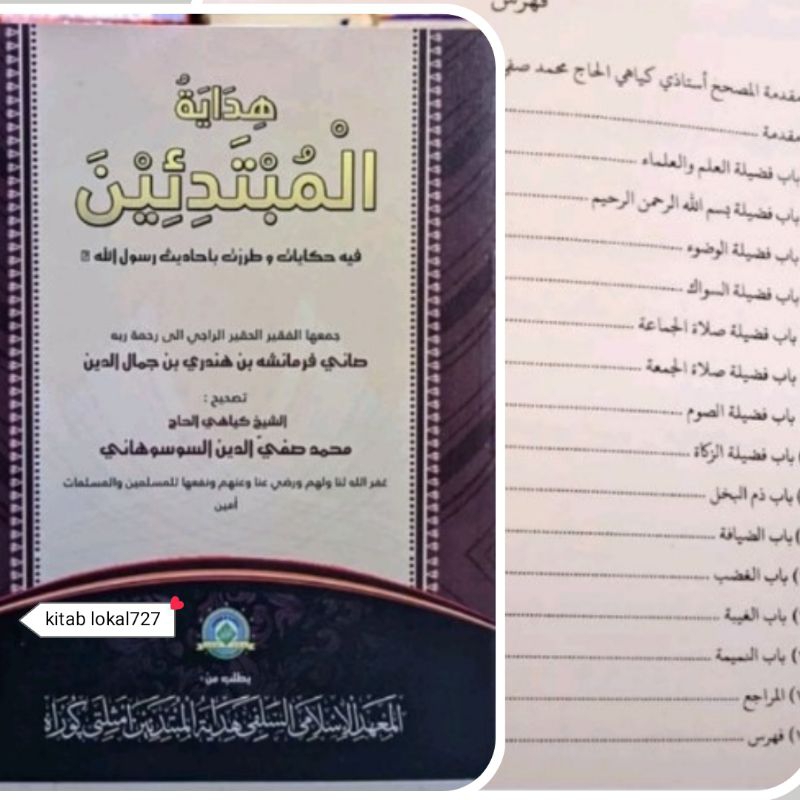 هِدَايَةُ
الْمُبْتَدِئِيْنَ
فيه حكايات و طرزت بأحاديث رسول الله
جمعها الفقير الحقير الراجي الى رحمة ربه
صاني فرمانشه بن هندري بن جمال الدين
تصحيح :
الشيخ كياهي الحاج
محمد صفيّ الدين السوسوهاني
غفر الله لنا ولهم ورضي عنا وعنهم ونفعها للمسلمين والمسلمات
أمين
kitab lokal727
يطلب من:
المعهد الإسلامي السلفي هداية المبتدئين
فهرس
مقدمة المصحح أستاذي كياهي الحاج محمد صفي
مقدمة
باب فضيلة العلم والعلماء
باب فضيلة بسم الله الرحمن الرحيم
باب فضيلة الوضوء
باب فضيلة السواك
باب فضيلة صلاة الجماعة
باب فضيلة صلاة الجمعة
باب فضيلة الصوم
باب فضيلة الزكاة
) باب ذم البخل
) باب الضيافة
) باب الغضب
) باب الغيبة
) باب النميمة
) المراجع
) فهرس